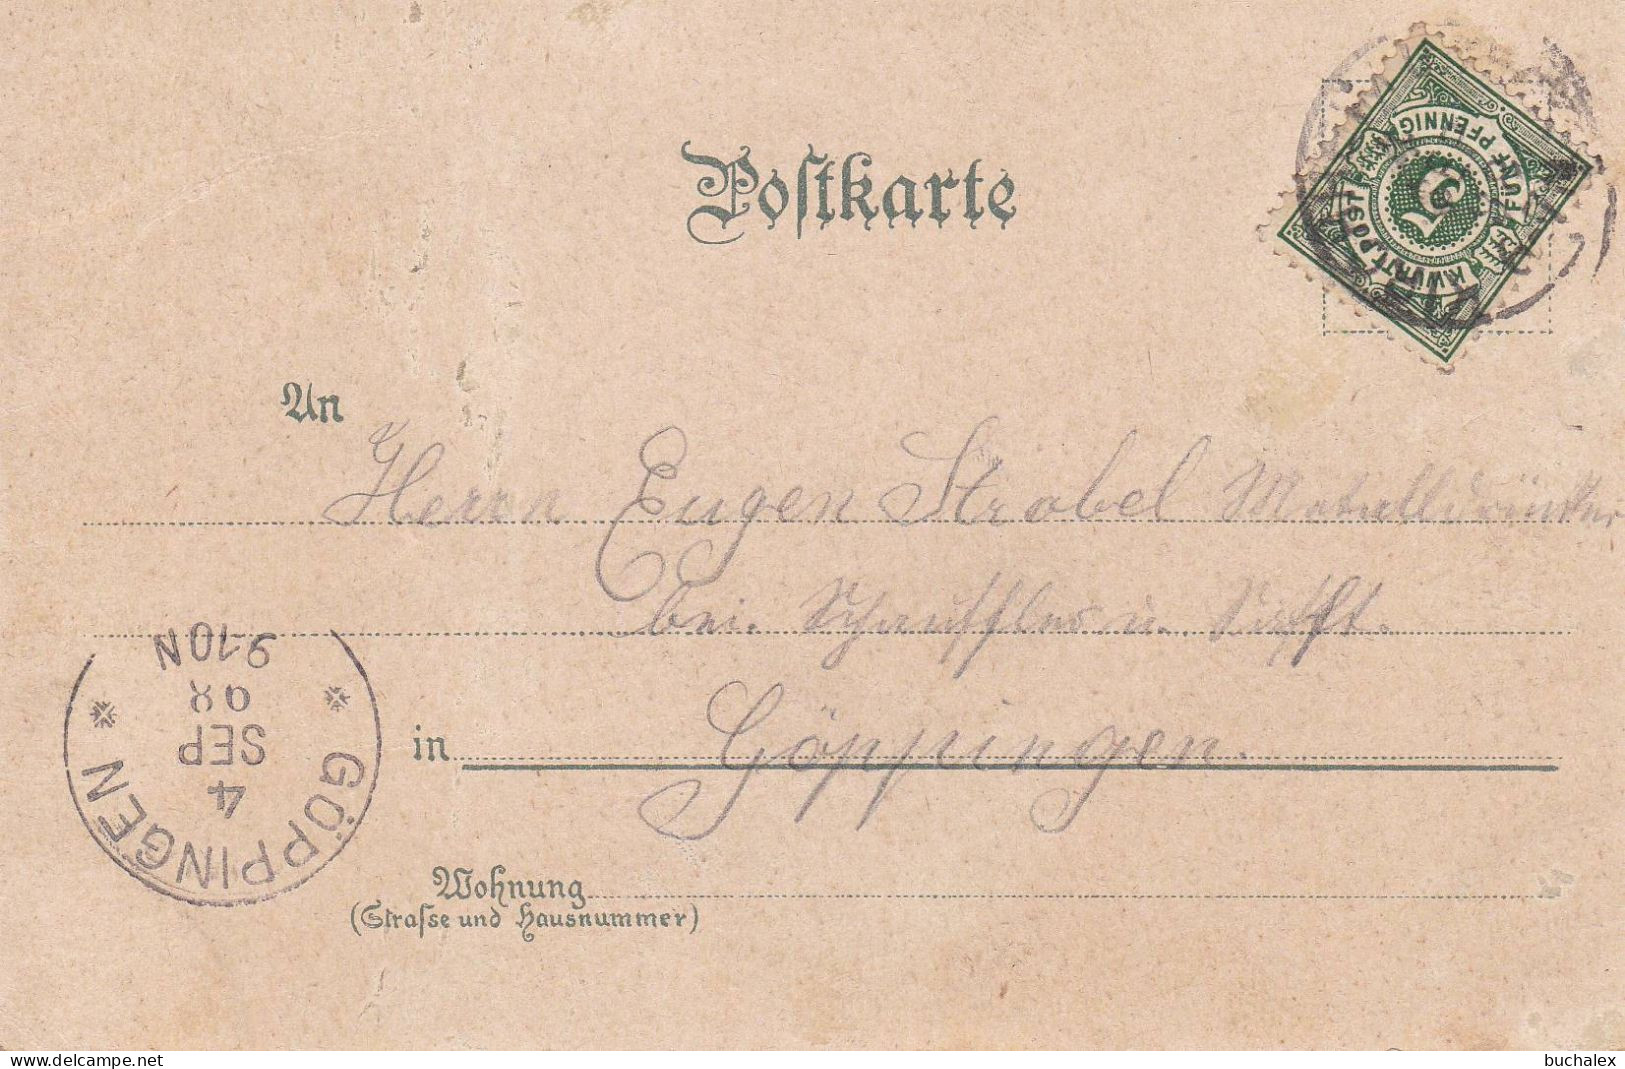 Postkarte
K.WÜRTT.POST
FÜNF PFENNIG
5
An
Herrn Eugen Strobel Metalldrücker
bei Schauffler u.
in Göppingen.
GÖPPINGEN
4
SEP
98
9-10N
Wohnung
(Strasse und Hausnummer)
www.delcampe.net
buchalex